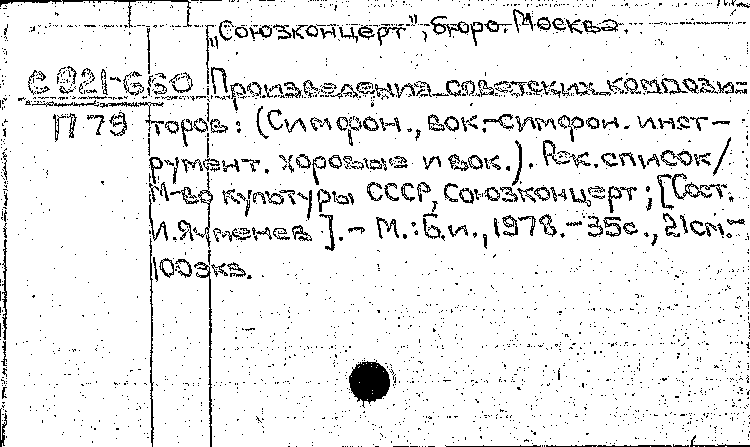 „Союзконцерт", бюро. Москва.
С 921-660 Произведения советских компози-
П 79 торов: (Симфон., вок.-симфон. инст-
румент. хоровые и вок.). Рек. список/
М-во культуры СССР, Союзконцерт; [Сост.
И. Ячменев]. - М.: Б.и., 1978. - 35с., 21см. -
100экз.